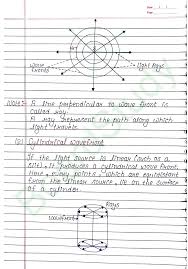 Wave fronts
light Rays
Note:- A line perpendicular to wave front is called ray.
A ray represent the path along which light travels.
(2) Cylindrical wavefront
If the light source is linear (such as a slit), it produces a cylindrical wave front.
Here, every points, which are equidistant from the linear source, lie on the surface of a cylinder.
Rays
Wavefront